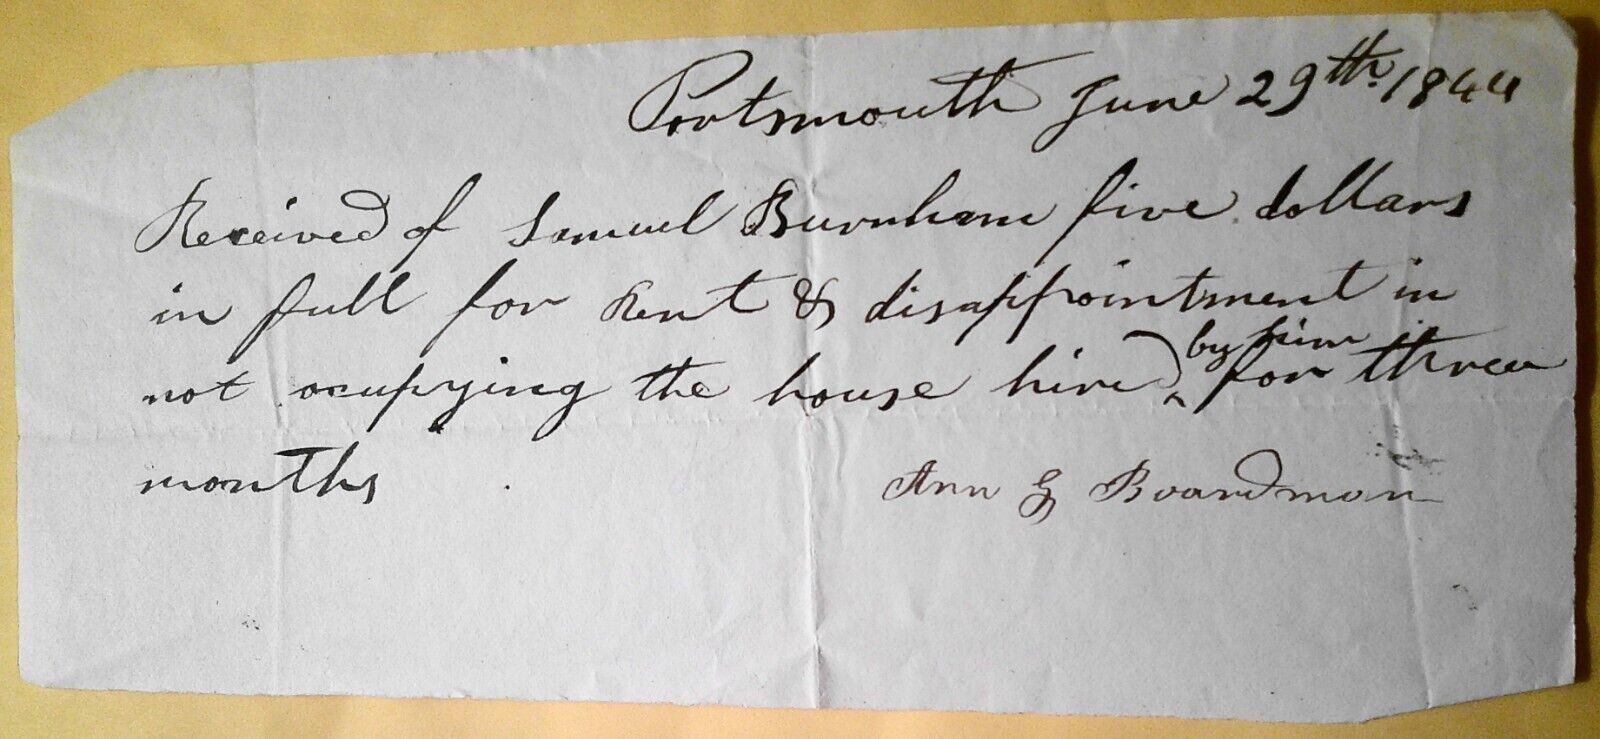 Portsmouth June 29th. 1844
Received of Samuel Burnham five dollars
in full for Rent & disappointment in
not ocupying the house hired ^by him for three
months
Ann G Boardman